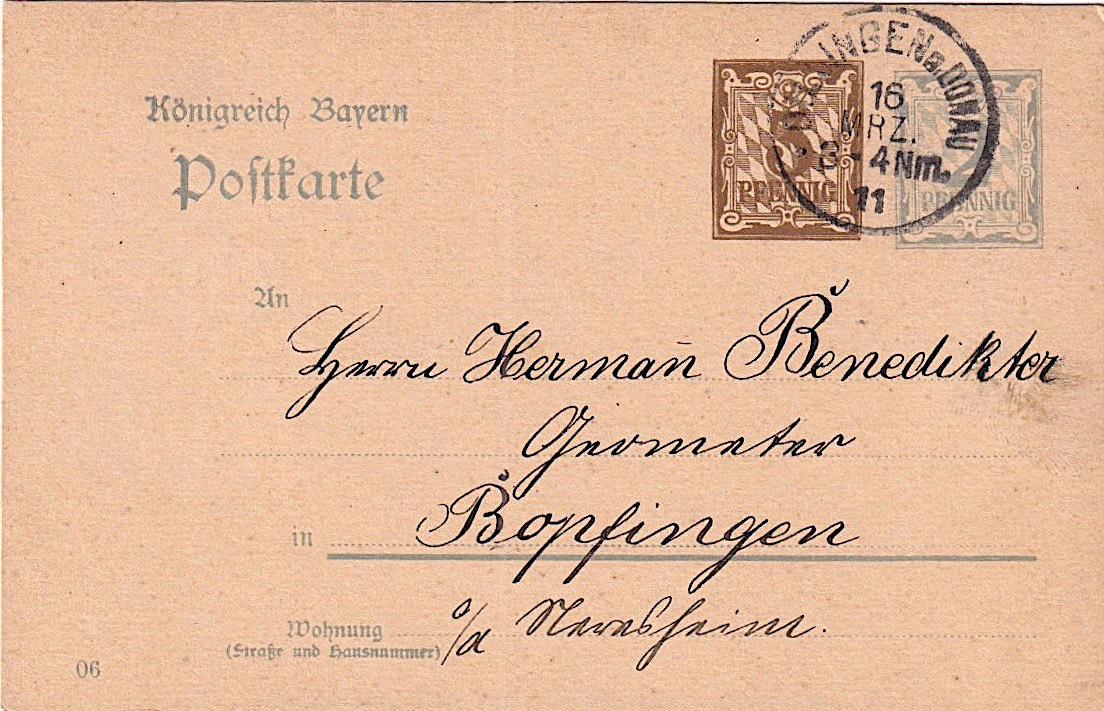 Königreich Bayern
Postkarte
INGEN a. DONAU
16
MRZ.
3-4 Nm.
11
PFENNIG
PFENNIG
An
Herrn Hermañ Benedikter
Geometer
in Bopfingen
Wohnung o/a Neresheim.
(Straße und Hausnummer)
06